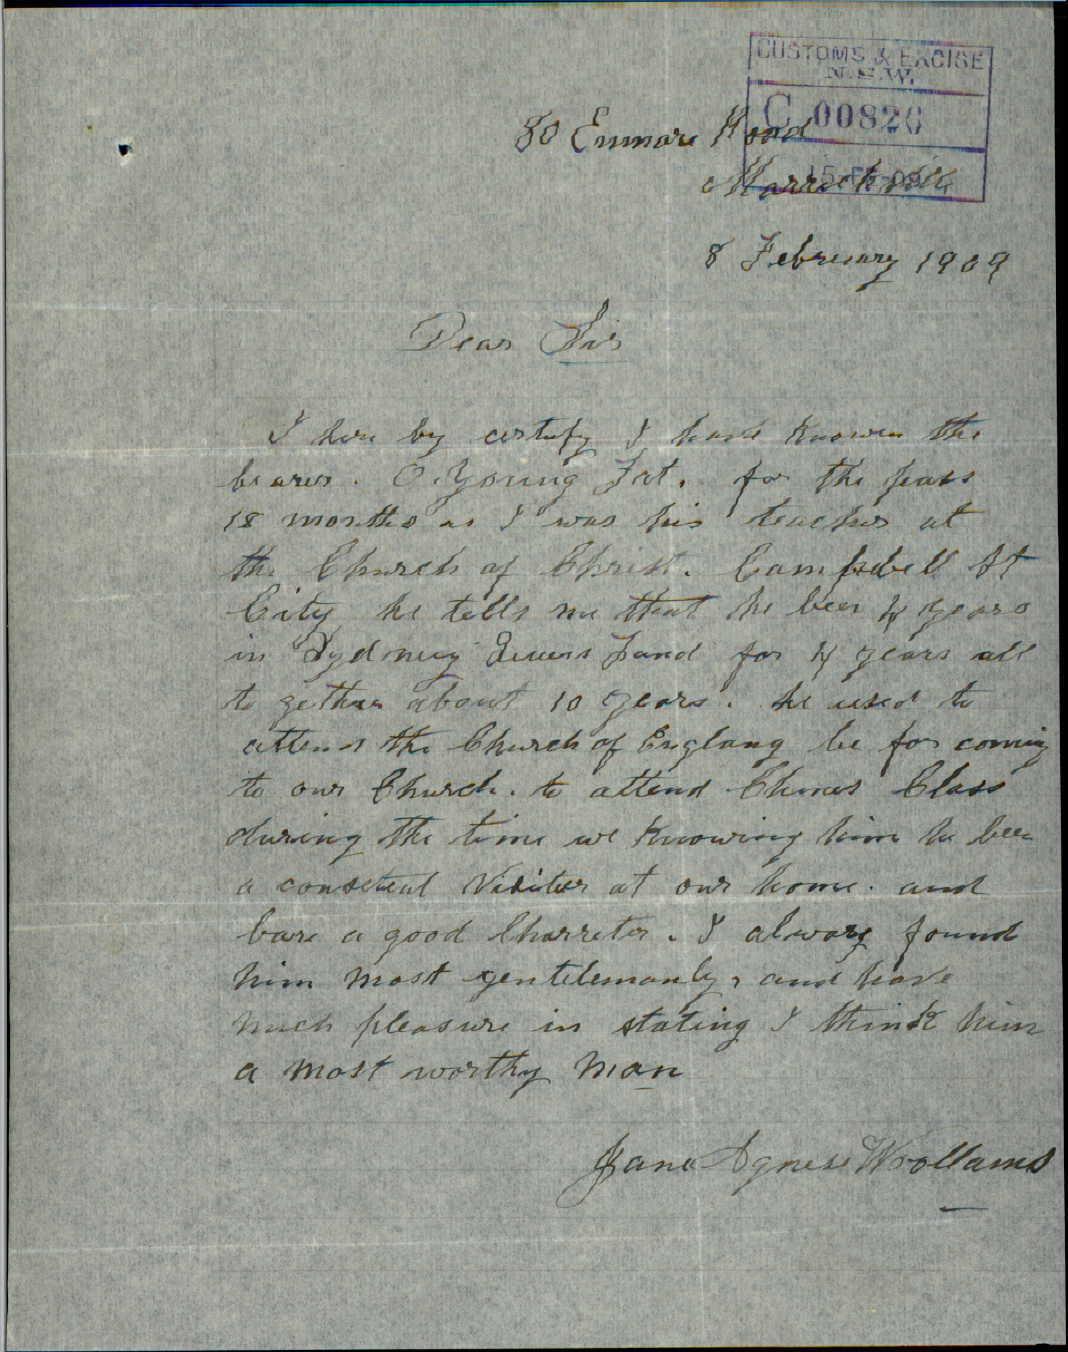 CUSTOMS & EXCISE
N.S.W.
C 00826
80 Enmore Road
Marrickville
8 February 1909
Dear Sir
I here by certify I have known the
bearer. O. Young Fat. for the pass
18 months as I was his teacher at
the Church of Christ. Campbell St
City he tells me that he been 4 years
in Sydney Queens Land for 4 years all
to gether about 10 years. he used to
attend the Church of Englang be for coming
to our Church. to attend Chines Class
during the time we knowing him he been
a constent Visiter at our home. and
bare a good Charreter. I alwoys found
him most gentelemanly, and have
much pleasure in stating I think him
a most worthy man
Jane Agness Woollams